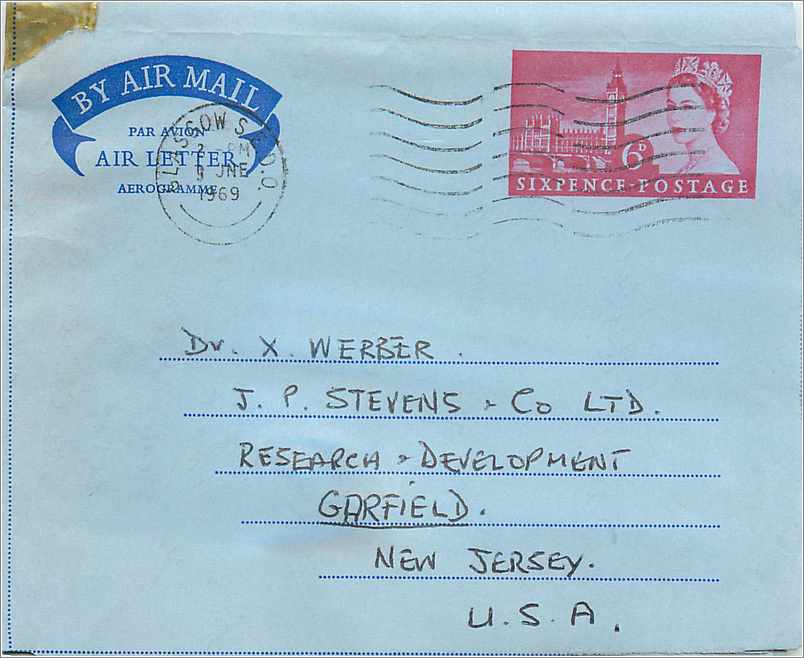 BY AIR MAIL
PAR AVION
AIR LETTER
AEROGRAMME
GLASGOW S.E.D.O.
2 - PM
JNE
1969
6D
SIXPENCE·POSTAGE
Dr. X. WERBER.
J. P. STEVENS & Co LTD.
RESEARCH & DEVELOPMENT
GARFIELD.
NEW JERSEY.
U. S. A.